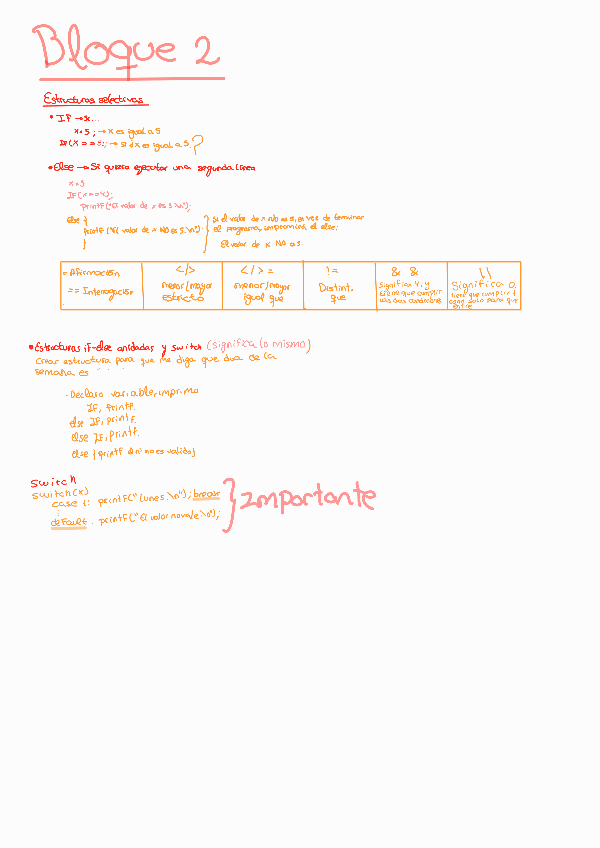 Bloque 2
Estructuras selectivas
• IF → si...
x=5; → x es igual a 5
IF(x==5); → si dx es igual a 5?
• Else → Si quiero ejecutar una segunda línea
x=5
IF(x==x);
printf("El valor de x es 5.\n");
Else {
printf("El valor de x NO es 5.\n");
}
Si el valor de x no es 5, en vez de terminar
el programa, imprimirá el else:
El valor de x NO es
= Afirmación
== Interrogación
</>
menor/mayor
estricto
</>=
menor/mayor
igual que
!=
Distint.
que
& &
Significa y, y
tiene que cumplir
las dos
\\
Significa o,
tiene que cumplir 1
solo para que
entre
• Estructuras if-else anidadas y switch (significa lo mismo)
Crear estructura para que me diga que día de la
semana es
· Declaro variable, imprimo
IF, printf.
else IF, printf.
else IF, printf.
else {printf el nº no es valido}
switch
switch(x)
case 1: printf("lunes.\n"); break
:
default. printf("El valor no vale \n");
} Importante